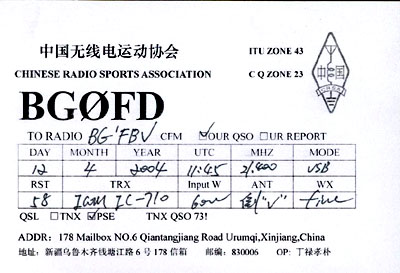 中国无线电运动协会
ITU ZONE 43
CHINESE RADIO SPORTS ASSOCIATION
C Q ZONE 23
BGØFD
TO RADIO BG1FBV CFM ☑OUR QSO □UR REPORT
DAY MONTH YEAR UTC MHZ MODE
12 4 2004 11:45 21.400 USB
RST TRX Input W ANT WX
58 ICOM IC-710 60w 倒"V" fine
QSL □TNX ☑PSE TNX QSO 73!
ADDR: 178 Mailbox NO.6 Qiantangjiang Road Urumqi,Xinjiang,China
地址: 新疆乌鲁木齐钱塘江路 6 号 178 信箱 邮编: 830006 OP: 丁禄孝朴